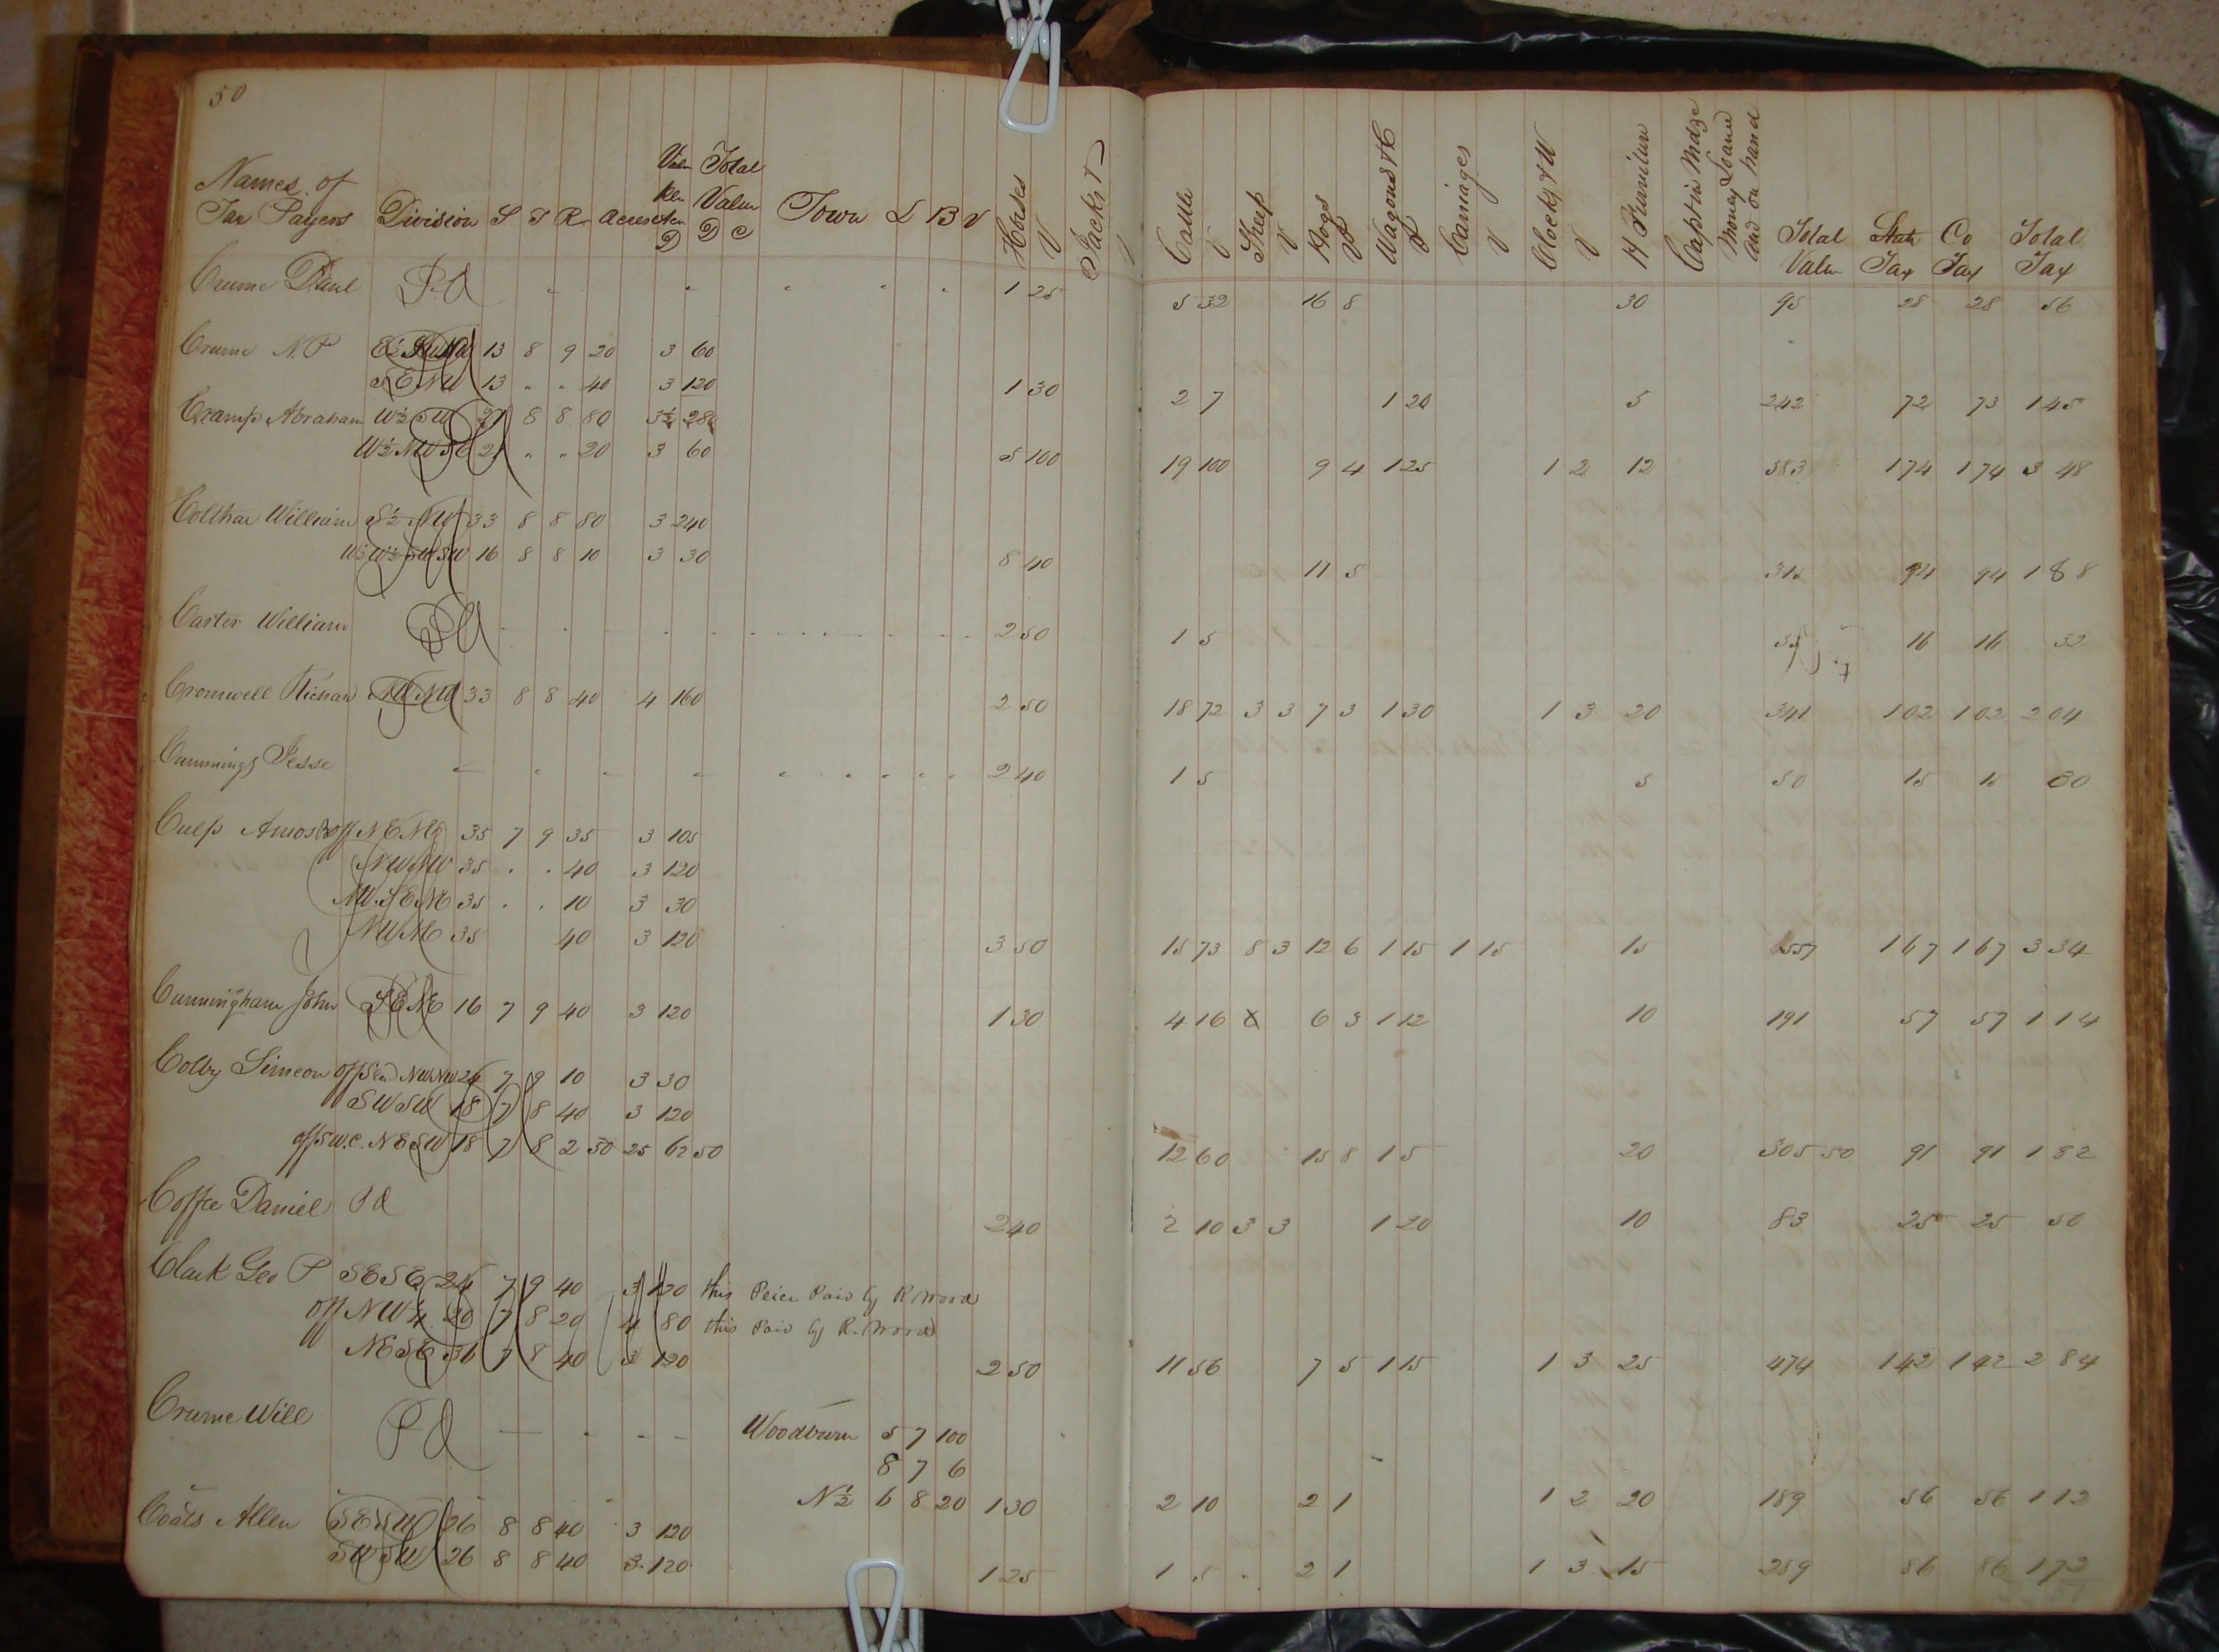 50
Names of Tax Payers Division S T R Acres Valu Per Acre D Total Value D C Town L B V Horses V Jacks V Cattle V Sheep V Hogs V Wagons &C V Carriages V Clocks & W V H Furniture Capt in Mdze Money Loand and on hand Total Value State Tax Co Tax Total Tax
Crume Paul Pd 1 25 5 32 16 8 30 95 28 28 56
Crume N. P E½ NW 13 8 9 20 3 60
SE NW 13 " " 40 3 120 1 30 2 7 1 20 5 242 72 73 1 45
Cramp Abraham W½ SW 21 8 8 80 3½ 280
W½ NW SE 21 " " 20 3 60 5 100 19 100 9 4 1 25 1 2 12 583 1 74 1 74 3 48
Colthar William S½ NW 33 8 8 80 3 240
W½ W½ SW SW 16 8 8 10 3 30 8 40 11 5 315 94 94 1 88
Carter William Pd 2 50 1 5 55 16 16 32
Cromwell Richard NW NW 33 8 8 40 4 160 2 50 18 72 3 3 7 3 1 30 1 3 20 341 1 02 1 02 2 04
Cummings Jesse 2 40 1 5 5 50 15 15 30
Culp Amos off NE NW 35 7 9 35 3 105
NW NW 35 . . 40 3 120
NW. SE NE 35 . . 10 3 30
NW NE 35 40 3 120 3 50 15 73 8 3 12 6 1 15 1 15 15 557 1 67 1 67 3 34
Cunningham John SE NE 16 7 9 40 3 120 1 30 4 16 6 3 1 12 10 191 57 57 1 14
Colby Simeon off S end NW NW 24 7 9 10 3 30
SW SW 18 7 8 40 3 120
off S W.C. NE SW 18 7 8 2 50 25 62 50 12 60 15 8 1 5 20 305 50 91 91 1 82
Coffee Daniel Pd 2 40 2 10 3 3 1 20 10 83 25 25 50
Clark Geo P SE SE 24 7 9 40 3 120 this Peice Paid by R Wood
off NW ¼ 20 7 8 20 4 80 this Paid by R. Wood
NE SE 36 7 8 40 3 120 2 50 11 56 7 5 1 15 1 3 25 474 1 42 1 42 2 84
Crume Will Pd Woodburn 5 7 100
8 7 6
N½ 6 8 20 1 30 2 10 2 1 1 2 20 189 56 56 1 12
Coats Allen SE SW 26 8 8 40 3 120
SW SW 26 8 8 40 3 120 1 25 1 5 2 1 1 3 15 289 86 86 1 72